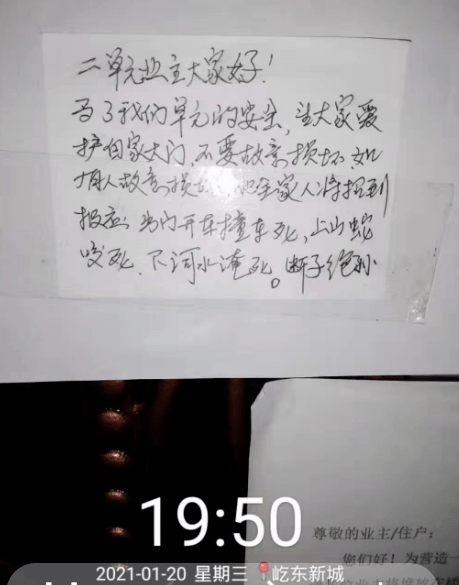 二单元业主大家好！
为了我们单元的安全，望大家爱
护自家大门，不要故意损坏，如
有人故意损坏，他全家人将招到
报应，出门开车撞车死，上山蛇
咬死，下河水淹死。断子绝孙
19:50
尊敬的业主/住户：
您们好！为营造一
2021-01-20 星期三 屹东新城